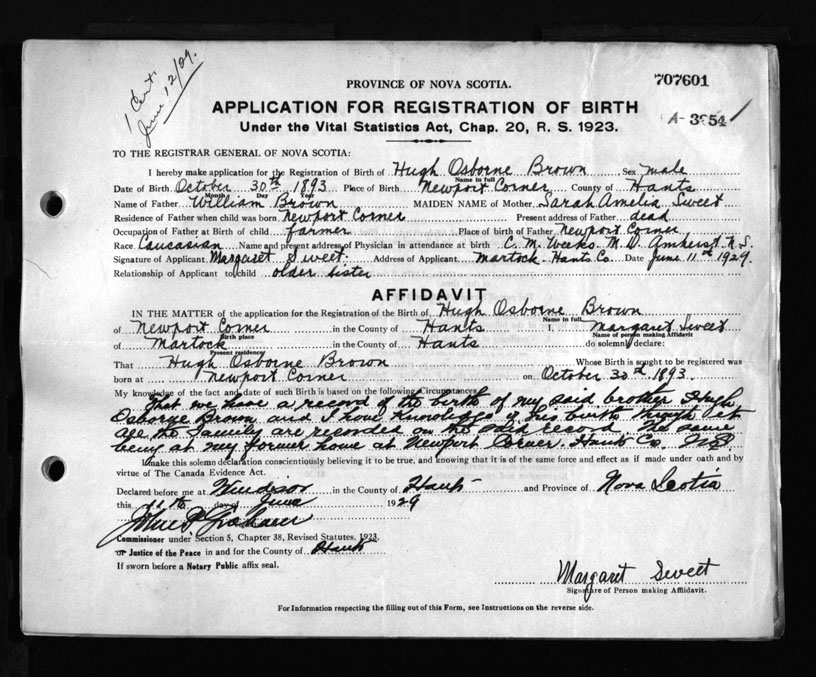 1 Cert.
June 12/29.
PROVINCE OF NOVA SCOTIA.
707601
APPLICATION FOR REGISTRATION OF BIRTH
A- 3854
Under the Vital Statistics Act, Chap. 20, R. S. 1923.
TO THE REGISTRAR GENERAL OF NOVA SCOTIA:
I hereby make application for the Registration of Birth of Hugh Osborne Brown Sex male
Name in full
Date of Birth October 30th 1893 Place of Birth Newport Corner County of Hants
Month Day Year
Name of Father William Brown MAIDEN NAME of Mother Sarah Amelia Sweet
Residence of Father when child was born Newport Corner Present address of Father dead
Occupation of Father at Birth of child farmer Place of birth of Father Newport Corner
Race Caucasian Name and present address of Physician in attendance at birth C. M. Weeks M. D. Amherst N. S.
Signature of Applicant Margaret Sweet Address of Applicant Martock Hants Co Date June 11th 1929
Relationship of Applicant to child older sister
AFFIDAVIT
IN THE MATTER of the application for the Registration of the Birth of Hugh Osborne Brown
Name in full
of Newport Corner in the County of Hants I, Margaret Sweet
Birth place Name of person making Affidavit
of Martock in the County of Hants do solemnly declare:
Present residence
That Hugh Osborne Brown Whose Birth is sought to be registered was
born at Newport Corner on October 30th 1893
My knowledge of the fact and date of such Birth is based on the following Circumstances
That we have a record of the birth of my said brother Hugh
Osborne Brown and I have knowledge of his birth
all the family are recorded on the said record the same
being at my former home at Newport Corner Hants Co. N.S.
I make this solemn declaration conscientiously believing it to be true, and knowing that it is of the same force and effect as if made under oath and by
virtue of The Canada Evidence Act.
Declared before me at Windsor in the County of Hants and Province of Nova Scotia
this 11th day of June 1929
Commissioner under Section 5, Chapter 38, Revised Statutes, 1923,
or Justice of the Peace in and for the County of Hants
If sworn before a Notary Public affix seal.
Margaret Sweet
Signature of Person making Affidavit.
For Information respecting the filling out of this Form, see Instructions on the reverse side.